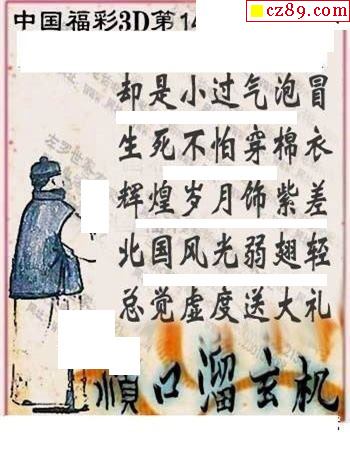 cz89.com
中国福彩3D第14
却是小过气泡冒
生死不怕穿棉衣
辉煌岁月饰紫差
北国风光弱翅轻
总觉虚度送大礼
顺口溜玄机